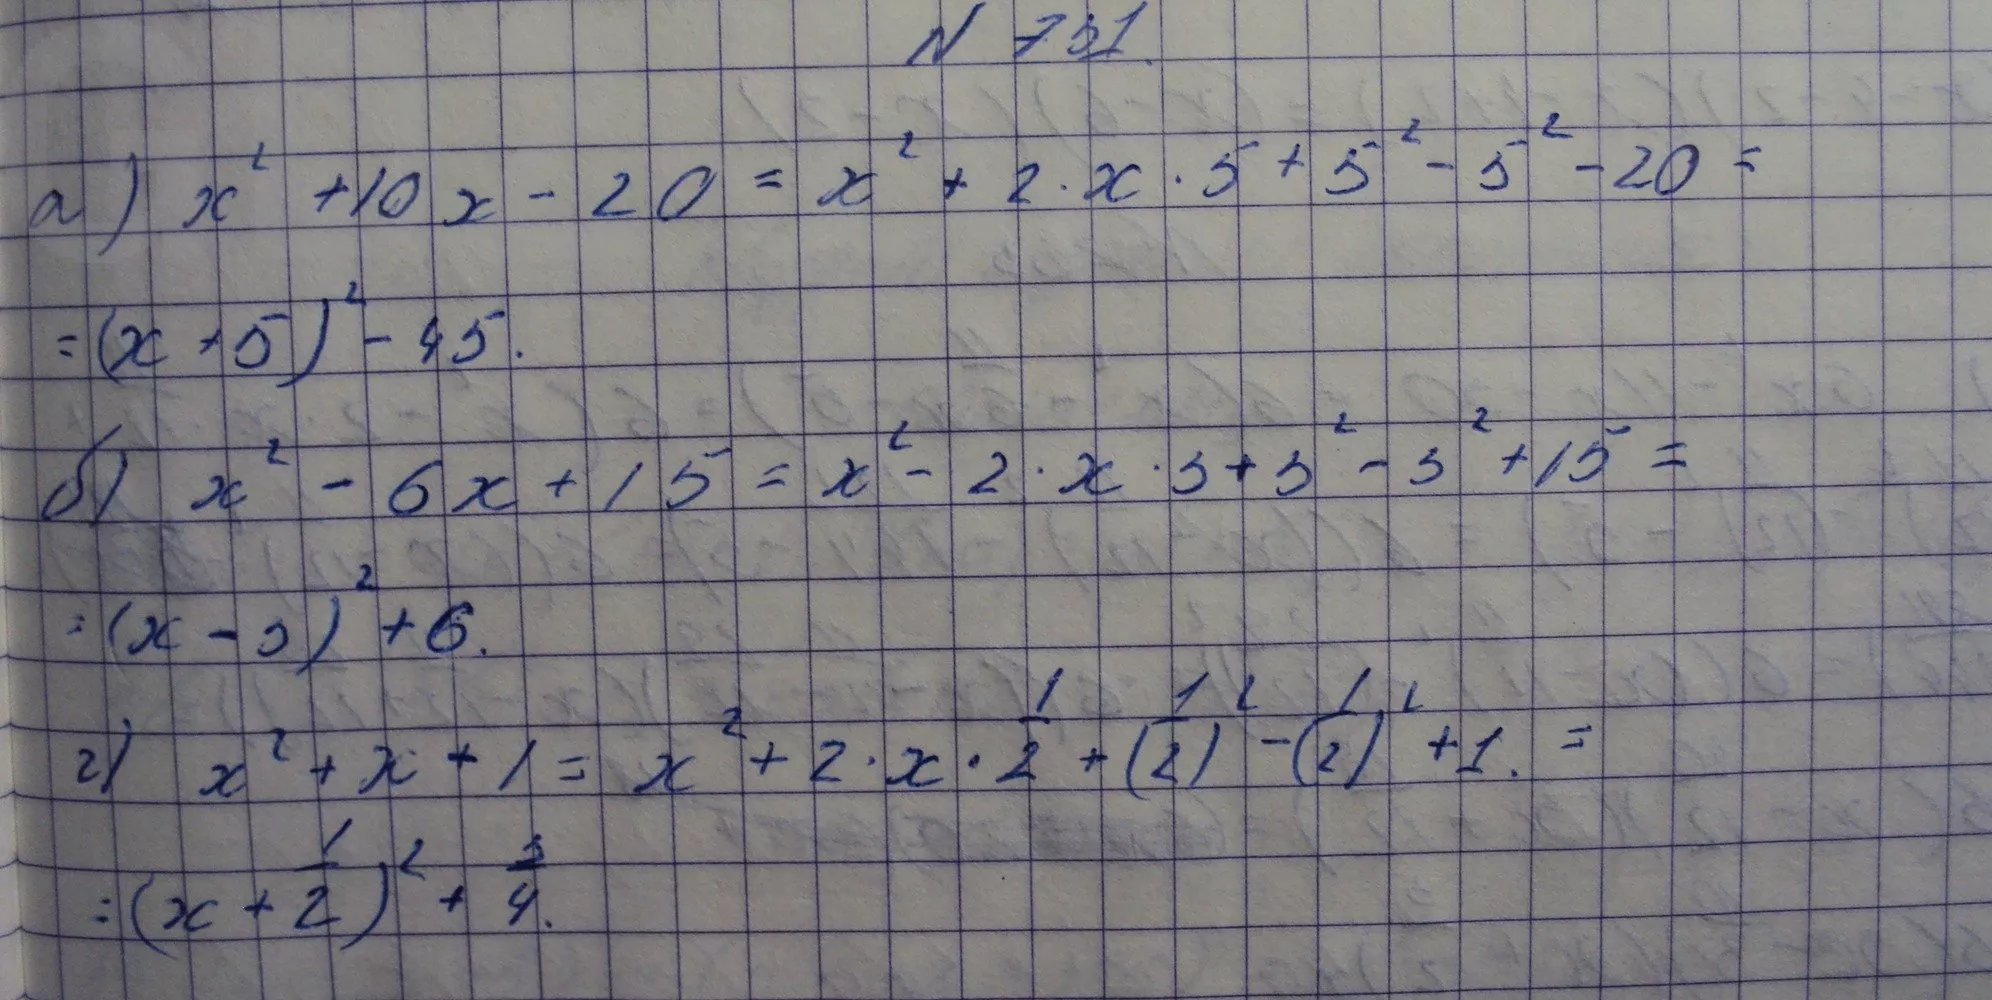 N 731.
а) x² + 10x - 20 = x² + 2 · x · 5 + 5² - 5² - 20 =
= (x + 5)² - 45.
б) x² - 6x + 15 = x² - 2 · x · 3 + 3² - 3² + 15 =
= (x - 3)² + 6.
г) x² + x + 1 = x² + 2 · x · 1/2 + (1/2)² - (1/2)² + 1. =
= (x + 1/2)² + 3/4.